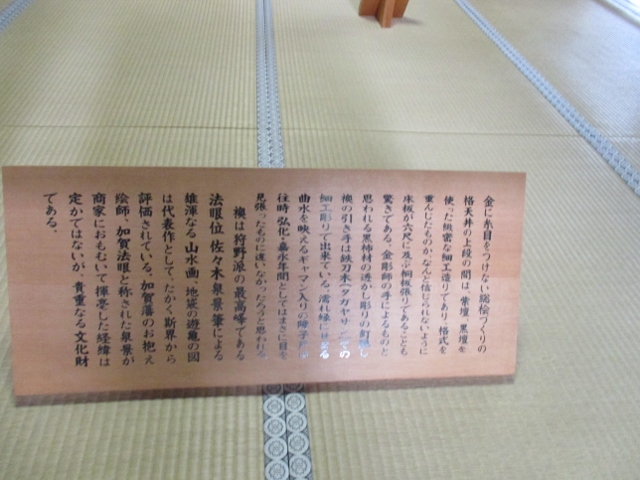 金に糸目をつけない総桧づくりの
格天井の上段の間は、紫壇、黒壇を
使った緻密な細工造りであり、格式を
重んじたものか、なんと信じられないように
床板が六尺に及ぶ桐板張りであることも
驚きである。金彫師の手によるものと
思われる黒柿材の透かし彫りの
襖の引き手は鉄刀木(タガヤサン)での
細工彫りで出来ている。濡れ縁に
曲水を映えるギヤマン入りの障子
往時、弘化・嘉永年間としてはまさに目を
見張ったものに違いなかっただろうと思われる
襖は狩野派の最高峰である
法眼位 佐々木泉景筆による
雄渾なる山水画、地袋の遊亀の図
は代表作として、たかく斯界から
評価されている。加賀藩のお抱え
絵師、加賀法眼と称された泉景が
商家におもむいて揮毫した経緯は
定かではないが、貴重なる文化財
である。